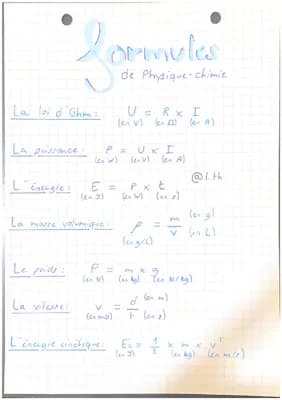 formules
de Physique-chimie
La loi d'Ohm : U = R x I
(en V) (en Ω) (en A)
La puissance : P = U x I
(en W) (en V) (en A)
@L.th
L'énergie : E = P x t
(en J) (en W) (en s)
La masse volumique : ρ = m/V (en g) (en L)
(en g/L)
Le poids : P = m x g
(en N) (en kg) (en N/kg)
La vitesse : v = d/t (en m) (en s)
L'énergie cinétique : Ec = 1/2 x m x v²
(en J) (en kg) (en m/s)